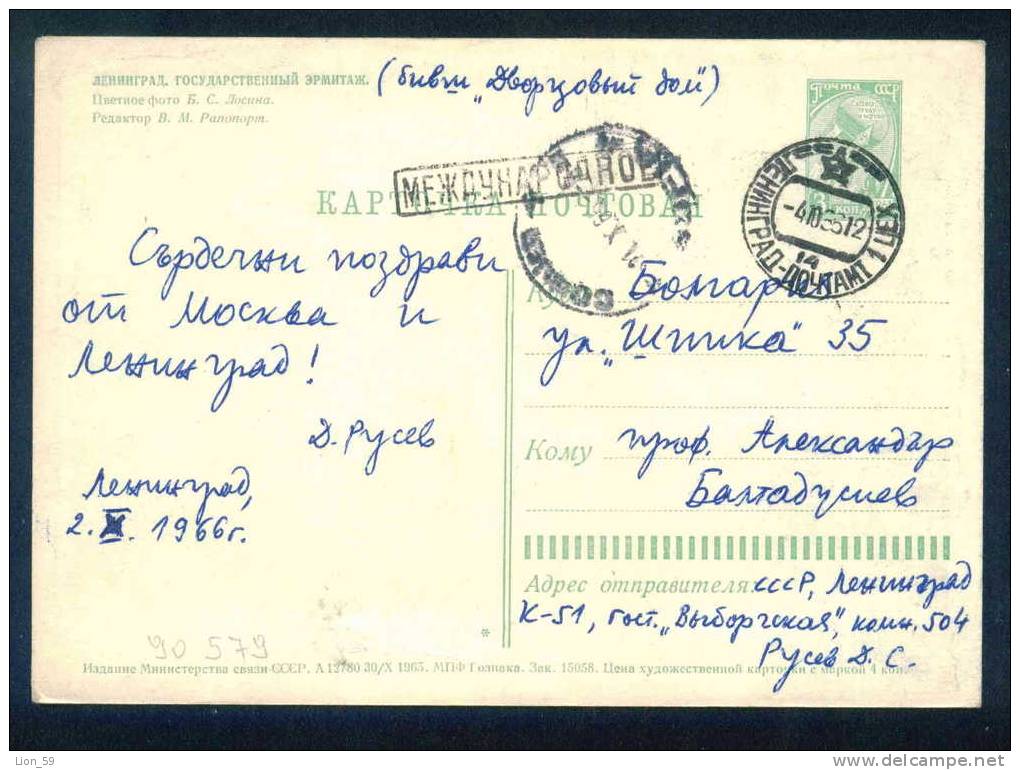 ЛЕНИНГРАД. ГОСУДАРСТВЕННЫЙ ЭРМИТАЖ.
Цветное фото Б. С. Лосина.
Редактор В. М. Рапопорт.
(бивш „Дворцовый дом")
Почта СССР
МЕЖДУНАРОДНОЕ
КАРТОЧКА ПОЧТОВАЯ
ЛЕНИНГРАД-ПОЧТАМТ 1 ЦЕХ
Сърдечни поздрави
от Москва и
Ленинград!
Д. Русев
Ленинград,
2. X. 1966г.
Болгария
ул. „Шипка" 35
Кому проф. Александър
Балтаджиев
Адрес отправителя: СССР, Ленинград
К-51, гост. „Выборгская", комн. 504
Русев Д. С.
90 579
*
Издание Министерства связи СССР. А 12780 30/X 1965. МПФ Гознака. Зак. 15058. Цена художественной карточки с маркой 4 коп.
Lion_59